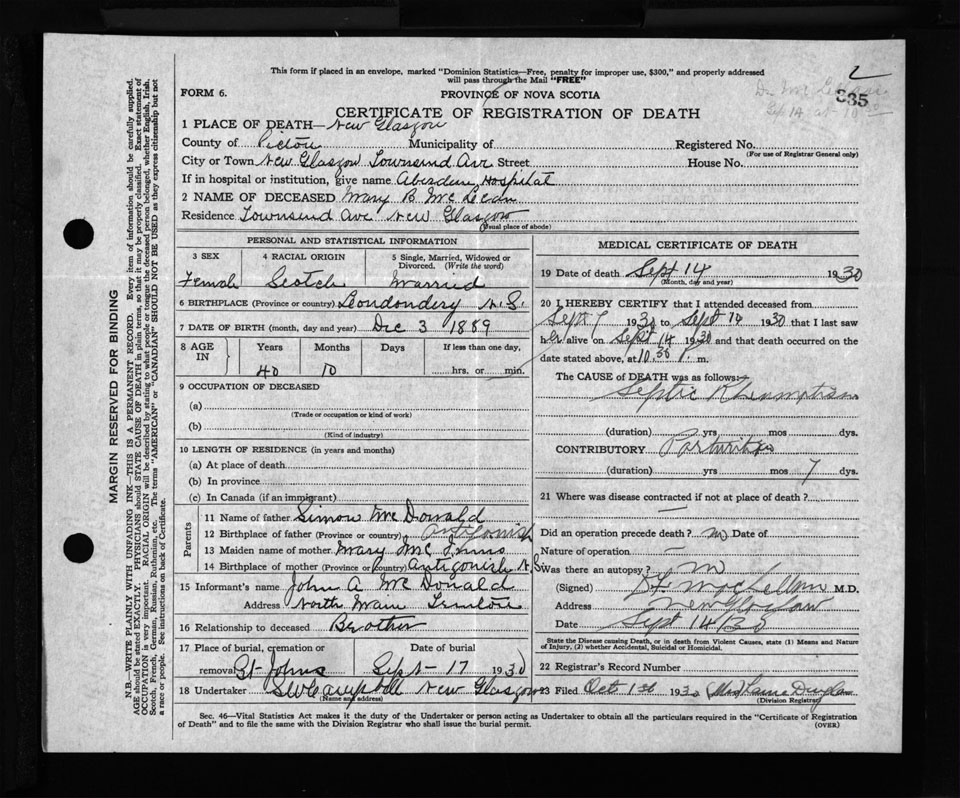 This form if placed in an envelope, marked "Dominion Statistics—Free, penalty for improper use, $300," and properly addressed
will pass through the Mail "FREE"
2
FORM 6.
PROVINCE OF NOVA SCOTIA
835
CERTIFICATE OF REGISTRATION OF DEATH
1 PLACE OF DEATH— New Glasgow
County of Pictou Municipality of Registered No.
(For use of Registrar General only)
City or Town New Glasgow Townsend Ave Street House No.
If in hospital or institution, give name Aberdeen Hospital
2 NAME OF DECEASED Mary B Mc Lean
Residence Townsend Ave New Glasgow
(Usual place of abode)
PERSONAL AND STATISTICAL INFORMATION
3 SEX 4 RACIAL ORIGIN 5 Single, Married, Widowed or Divorced. (Write the word)
Female Scotch Married
6 BIRTHPLACE (Province or country) Londondery N.S.
7 DATE OF BIRTH (month, day and year) Dec 3 1889
8 AGE IN Years Months Days If less than one day,
40 10 hrs. or min.
9 OCCUPATION OF DECEASED
(a)
(Trade or occupation or kind of work)
(b)
(Kind of industry)
10 LENGTH OF RESIDENCE (in years and months)
(a) At place of death
(b) In province
(c) In Canada (if an immigrant)
Parents
11 Name of father Simon Mc Donald
12 Birthplace of father (Province or country) Antigonish
13 Maiden name of mother Mary Mc Innis
14 Birthplace of mother (Province or country) Antigonish N.S.
15 Informant's name John A Mc Donald
Address North Main
16 Relationship to deceased Brother
17 Place of burial, cremation or Date of burial
removal St Johns Sept 17 1930
18 Undertaker Campbell New Glasgow
(Name and address)
MEDICAL CERTIFICATE OF DEATH
19 Date of death Sept 14 1930
(Month, day and year)
20 I HEREBY CERTIFY that I attended deceased from
Sept 7 1930 to Sept 14 1930 that I last saw
her alive on Sept 14 1930 and that death occurred on the
date stated above, at 10.30 P. m.
The CAUSE of DEATH was as follows:
Septic
(duration) yrs mos dys.
CONTRIBUTORY Parturition
(duration) yrs mos 7 dys.
21 Where was disease contracted if not at place of death?
Did an operation precede death? no Date of
Nature of operation —
Was there an autopsy? no
(Signed) MacLellan M.D.
Address New Glasgow
Date Sept 14/30
State the Disease causing Death, or in death from Violent Causes, state (1) Means and Nature
of Injury, (2) whether Accidental, Suicidal or Homicidal.
22 Registrar's Record Number
23 Filed Oct 1st 1930 (Mrs)
(Division Registrar)
Sec. 46—Vital Statistics Act makes it the duty of the Undertaker or person acting as Undertaker to obtain all the particulars required in the "Certificate of Registration
of Death" and to file the same with the Division Registrar who shall issue the burial permit.
(OVER)
MARGIN RESERVED FOR BINDING
N.B.—WRITE PLAINLY WITH UNFADING INK—THIS IS A PERMANENT RECORD. Every item of information should be carefully supplied.
AGE should be stated EXACTLY. PHYSICIANS should STATE CAUSE OF DEATH in plain terms, so that it may be properly classified. Exact statement of
OCCUPATION is very important. RACIAL ORIGIN will be described by stating to what people or tongue the deceased person belonged, whether English, Irish,
Scotch, French, German, Russian, Ruthenian, etc. The terms "AMERICAN" or "CANADIAN" SHOULD NOT BE USED as they express citizenship but not
a race or people. See instructions on back of Certificate.